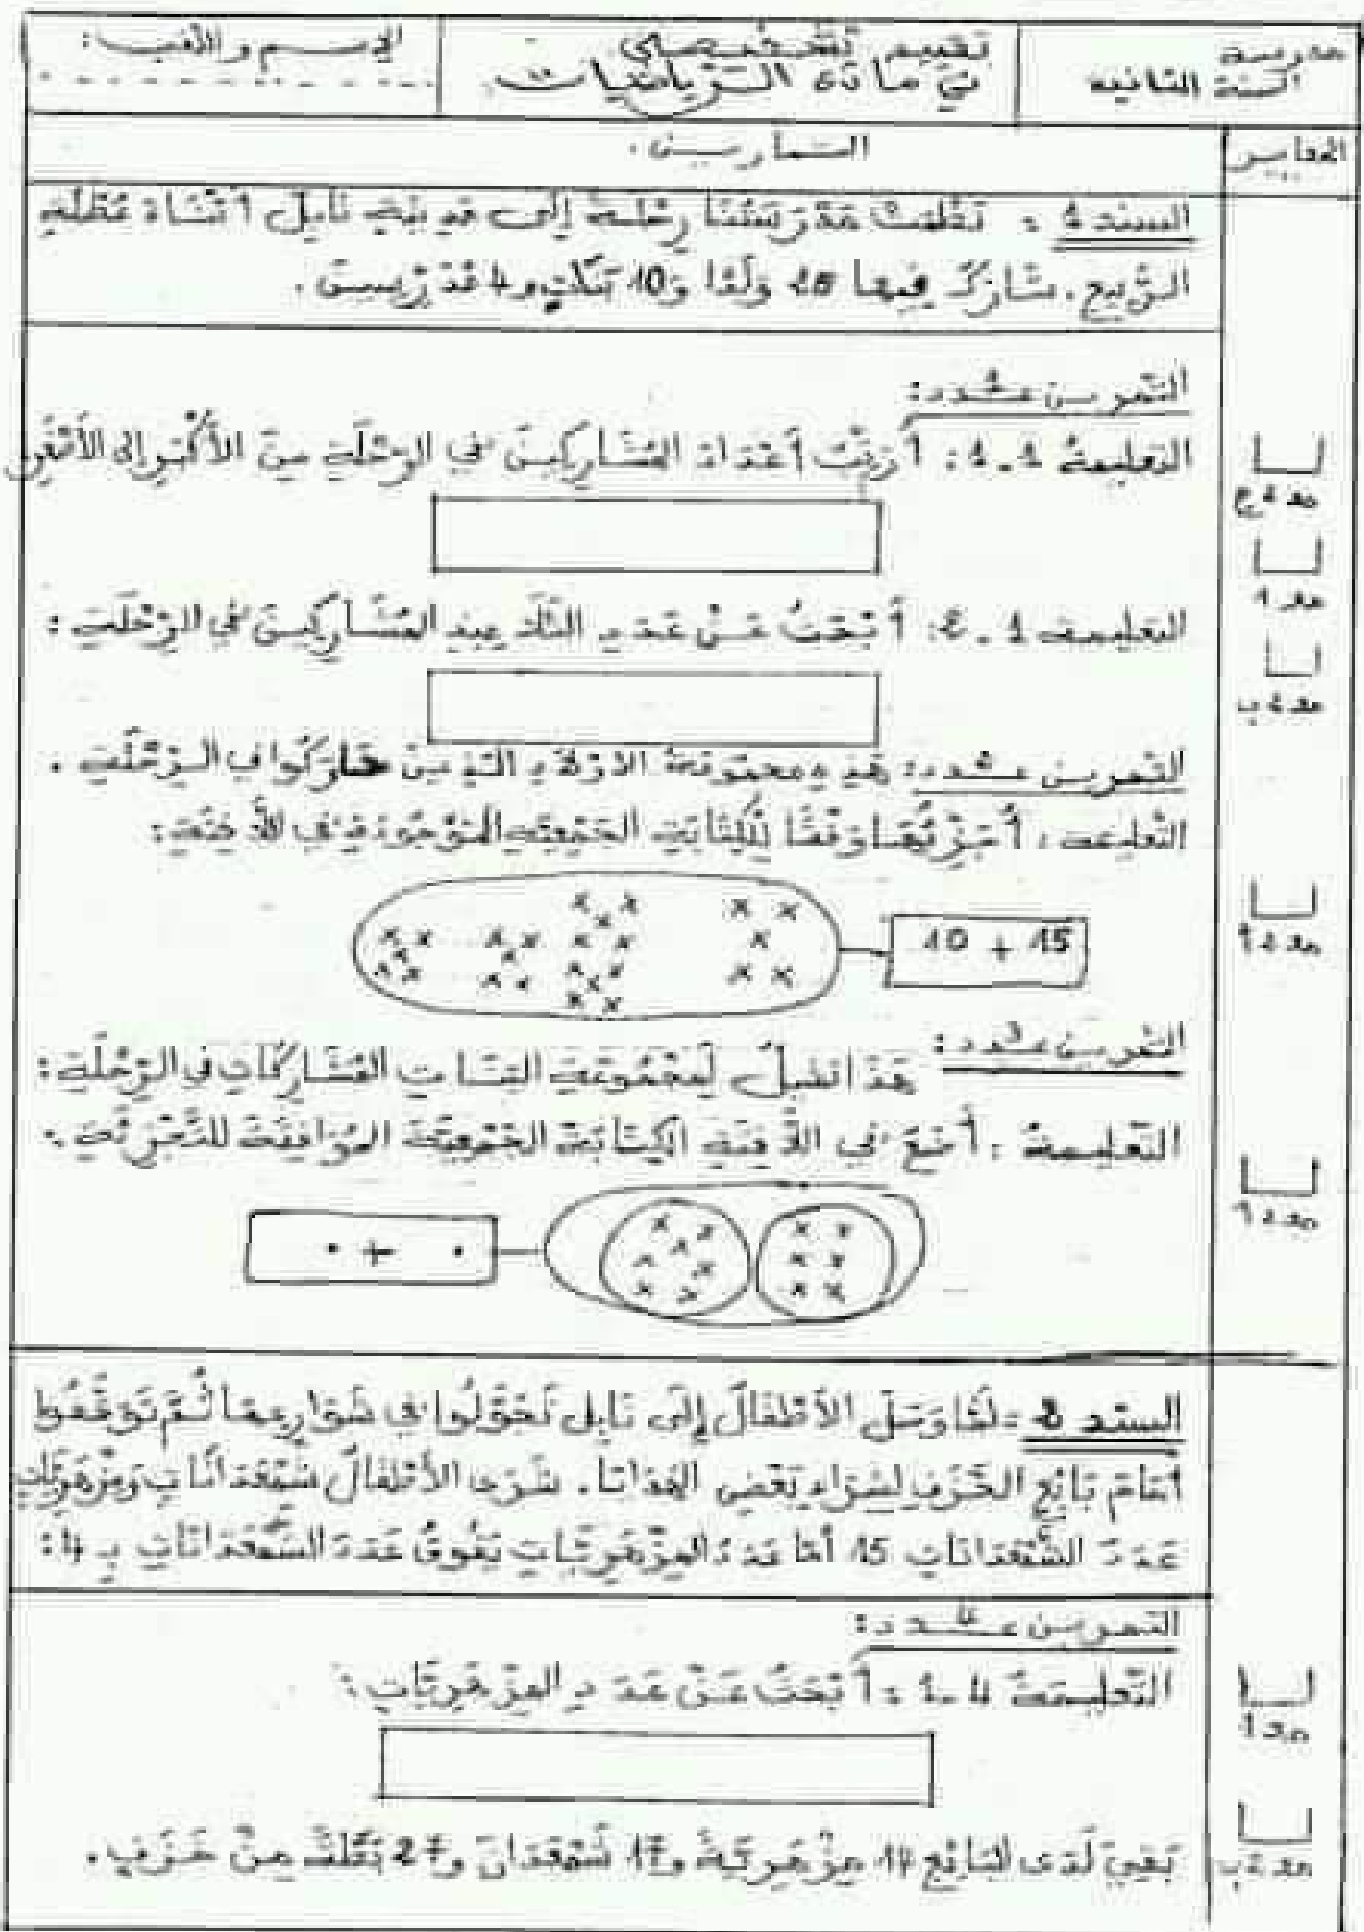 مدرسة
السنة الثانية
تقييم تشخيصي
في مادة الرياضيات
الإسم واللقب:
المعايير
التمارين.
السند 1 : نظمت مدرستنا رحلة إلى مدينة نابل أثناء عطلة
الربيع. شارك فيها ولدا و10 بنات و4 مدرسين.
التمرين عدد:
التعليمة 1-1: أرتب أعداد المشاركين في الرحلة من الأكبر إلى الأصغر
التعليمة 1-2: أبحث عن عدد التلاميذ المشاركين في الرحلة:
التمرين عدد: هذه مجموعة الأولاد الذين شاركوا في الرحلة.
التعليمة: أجزئها وفقا للكتابة الجمعية الموجودة في اللافتة:
10 + 15
التمرين عدد3: هذا تمثيل لمجموعة البنات المشاركات في الرحلة:
التعليمة: أضع في اللافتة الكتابة الجمعية الموافقة للتجزئة:
. + .
السند 2 = لما وصل الأطفال إلى نابل تجولوا في شوارعها ثم توقفوا
أمام بائع الخزف لشراء بعض الهدايا. شرى الأطفال شمعدانات ومزهريات
عدد الشمعدانات 15 أما عدد المزهريات يفوق عدد الشمعدانات بـ 4:
التمرين عدد4:
التعليمة 4-1 = أبحث عن عدد المزهريات:
بقي لدى البائع 14 مزهرية و شمعدان و من خزف.
مع2ج
مع1
مع2ب
مع2أ
مع2أ
مع1
مع2ب